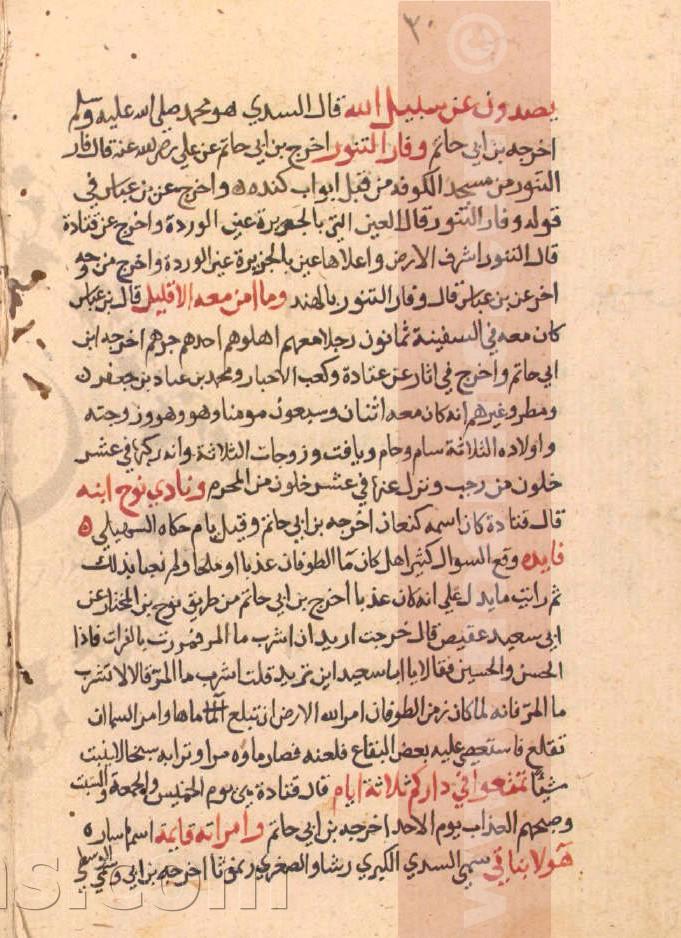 ٣٠
يصدون عن سبيل الله قال السدي هو محمد صلى الله عليه وسلم
اخرجه بن ابي حاتم وفار التنور اخرج بن ابي حاتم عن علي رضي الله عنه قال فار
التنور من مسجد الكوفه من قبل ابواب كنده واخرج عن بن عباس في
قوله وفار التنور قال العين التي بالجزيرة عين الوردة واخرج عن قتادة
قال التنور اشرف الارض واعلاها عين بالجزيرة عين الوردة واخرج من وجه
اخر عن بن عباس قال وفار التنور بالهند وما امن معه الا قليل قال بن عباس
كان معه في السفينة ثمانون رجلا معهم اهلوهم احدهم جرهم اخرجه ابن
ابي حاتم واخرج في اثار عن قتادة وكعب الاحبار ومحمد بن عباد بن جعفر
ومطر وغيرهم انه كان معه اثنان وسبعون مومنا وهو وهو وزوجته
واولاده الثلاثة سام وحام ويافت وزوجات الثلاثة وانه ركبها في عشر
خلون من رجب ونزل عنها في عشر خلون من المحرم ونادي نوح ابنه
قال قتادة كان اسمه كنعان اخرجه بن ابي حاتم وقيل يام حكاه السهيلي ه
فايده وقع السوال كثيرا هل كان ما الطوفان عذبا او ملحا ولم نجبا بذلك
ثم رايت ما يدل علي انه كان عذبا اخرج بن ابي حاتم من طريق نوح بن المختار عن
ابي سعيد عقيص قال خرجت اريد ان اشرب ما المر فمررت بالفرات فاذا
الحسن والحسين فقالا يا ابا سعيد اين تريد قلت اشرب ما المر قالا لا تشرب
ما المر فانه لما كان زمن الطوفان امر الله الارض ان تبلع ماها وامر السما ان
تقلع فاستعصي عليه بعض البقاع فلعنه فصار ماوه مرا وترابه سبخا لا ينبت
شيئا تمتعوا في داركم ثلاثة ايام قال قتادة هي يوم الخميس والجمعة والسبت
وصبحهم العذاب يوم الاحد اخرجه بن ابي حاتم وامراته قايمة اسمها ساره
هولا بناتي سمي السدي الكبري ريثا والصغري رغوثا اخرجه بن ابي
ns.com